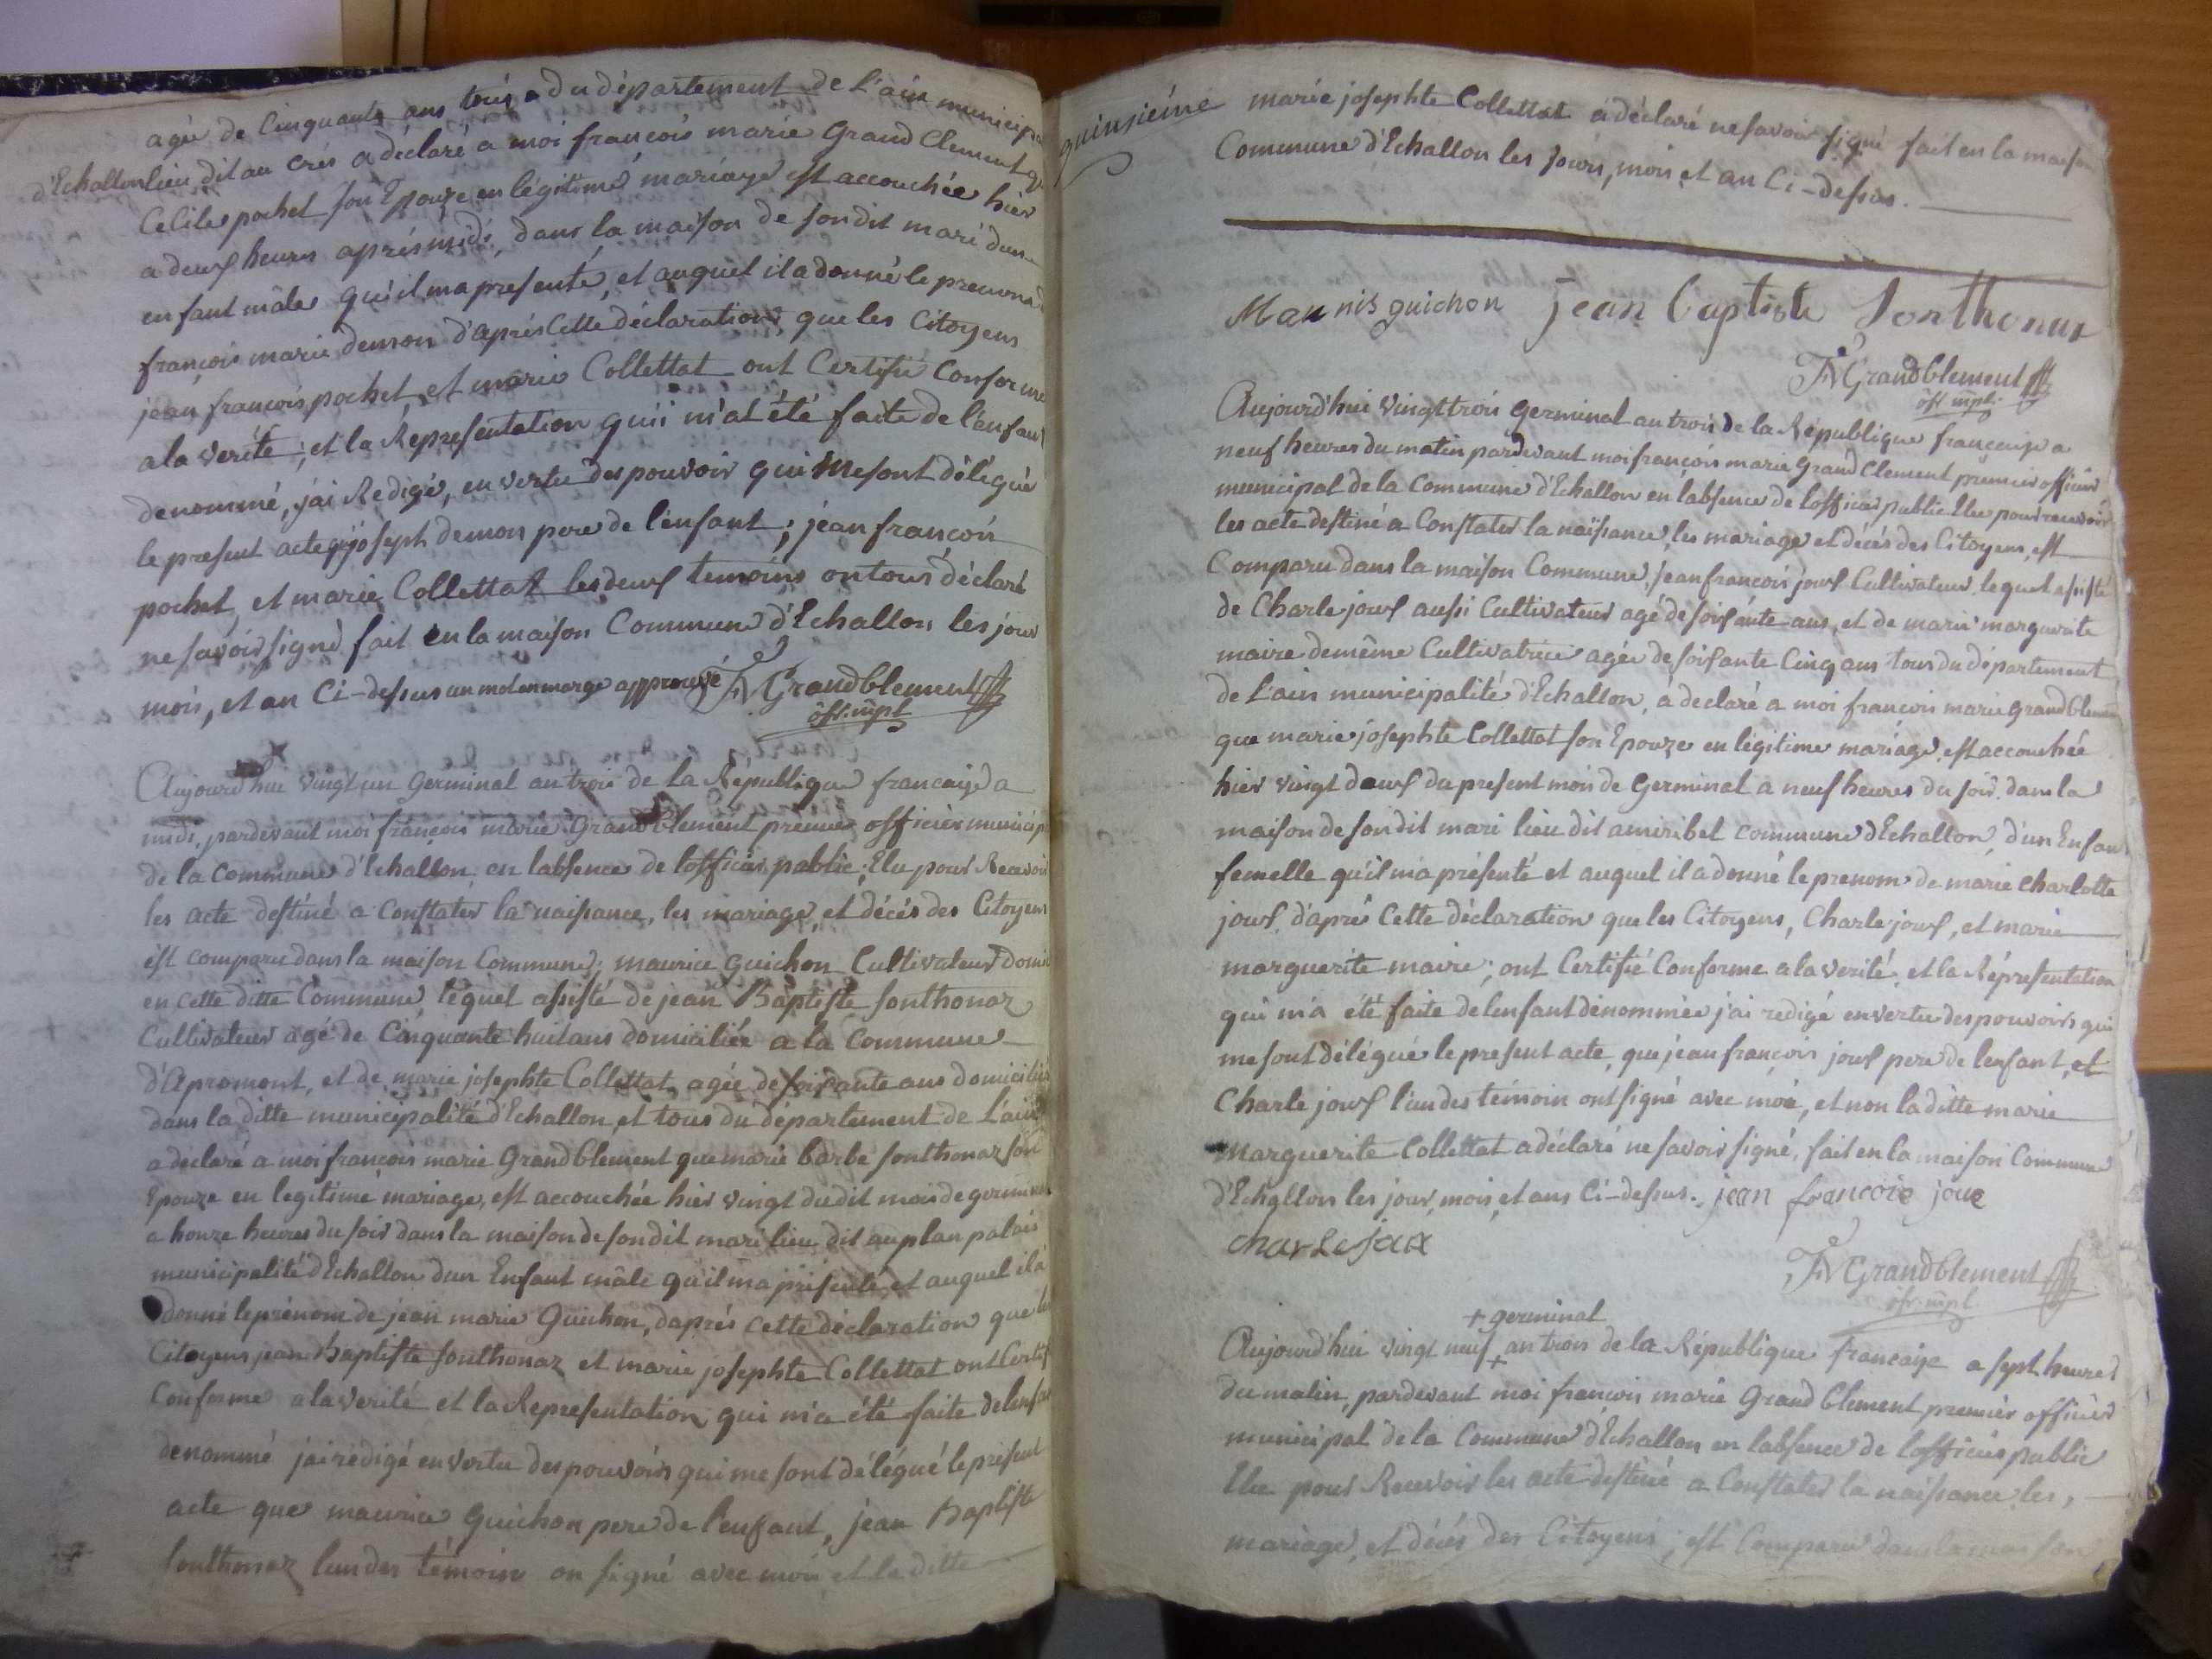 agée de Cinquante ans tous du département de L'ain municip
d'Echallon lieu dit au crés a déclaré a moi françois marie Grand Clement q
Cecile pochet son Epouze en légitime mariage est accouchée hier
a deux heures aprés midi, dans la maison de son dit mari dun
enfant mâle qu'il ma presenté, et auquel il a donné le prenom d
françois marie demon d'aprés Cette déclaration que les Citoyens
jean françois pochet et marie Collettat ont Certifié Conforme
a la verité; et la Représentation qui m'at été faite de l'enfan
denommé, j'ai Redigé, en vertu des pouvoir qui me sont délégué
le present acte joseph demon pere de l'enfant; jean françois
pochet, et marie Collettat les deux temoins on tous déclaré
ne savoir signé fait en la maison Commune d'Echallon les jour
mois, et an Ci-dessus un mot en marge approuvé FM Grandblement
off. mpl
Aujourd'hui vingt un Germinal an trois de la République françaize a
midi, pardevant moi françois marie Grandblement premier officier municip
de la Commune d'Echallon, en labsence de lofficier public, Elu pour Recevoir
les acte destiné a Constater la naissance, les mariage, et décés des Citoyens
est comparu dans la maison Commune, maurice Guichon Cultivateur domi
en cette ditte Commune, lequel assisté de jean Baptiste sonthonaz
Cultivateur agé de Cinquante huit ans domiciliée a la Commune
d'Apremont, et de marie josephte Collettat, agée de soixante ans domicilié
dans la ditte municipalité d'Echallon, et tous du département de L'ain
a déclaré a moi françois marie Grandblement que marie barbe sonthonaz son
Epouze en legitime mariage, est accouchée hier vingt dudit mois de germinal
a honze heures du soir dans la maison de son dit mari lieu dit au plan palais
municipalité d'Echallon dun Enfant mâle qu'il ma présenté, et auquel il a
donné le prénom de jean marie Guichon, daprés cette déclaration que les
Citoyens jean Baptiste sonthonaz et marie josephte Collettat ont Certif
Conforme a la verité et la Representation qui m'a été faite de lenfan
denommé j'ai redigé en vertu des pouvoirs qui me sont délégué le présent
acte que maurice Guichon pere de l'enfant, jean Baptiste
sonthonaz lun des témoins on signé avec moi et la ditte
quinsiéme marie josephte Collettat a déclaré ne savoir signé fait en la maison
Commune d'Echallon les jours, mois et an Ci-dessus.
Maunis guichon jean baptiste Sonthonax
FM Grandblement
off mpl.
Aujourd'hui vingt trois Germinal an trois de la République françaize a
neuf heures du matin pardevant moi françois marie Grand Clement premier officier
municipal de la Commune d'Echallon en labsence de lofficier public Elu pour recevoir
les acte destiné a Constater la naissance, les mariage et décés des Citoyens, est
Comparu dans la maison Commune, jean françois joux Cultivateur, lequel assisté
de Charle joux aussi Cultivateur agé de soixante ans, et de marie marguerite
maire demême Cultivatrice agée de soixante Cinq ans tous du département
de L'ain municipalité d'Echallon, a declaré a moi françois marie Grandblement
que marie josephte Collettat son Epouze en légitime mariage, est accouchée
hier vingt deux du present mois de Germinal a neuf heures du soir, dans la
maison de son dit mari lieu dit a miribel commune d'Echallon, d'un Enfan
femelle qu'il m'a présenté et auquel il a donné le prenom de marie charlotte
joux, d'aprés Cette déclaration que les Citoyens, Charle joux, et marie
marguerite maire; ont Certifié Conforme a la verité, et la Réprésentation
qui m'a été faite de lenfant dénommée j'ai redigé en vertu des pouvoirs qui
me sont délégué le present acte, que jean françois joux pere de lenfant, et
Charle joux l'un des témoin ont signé avec moi, et non la ditte marie
marguerite Collettat a déclaré ne savoir signé, fait en la maison Commune
d'Echallon les jour, mois, et ans Ci-dessus. jean francois joue
charle jax
FM Grandblement
ofr. mpl
+ germinal
Aujourd'hui vingt neuf + an trois de la République françaize a sept heures
du matin, pardevant moi françois marie Grand Clement premier officier
municipal de la Commune d'Echallon en labsence de lofficier public
Elu pour Recevoir les acte destiné a Constater la naissance, les,
mariage, et décés des Citoyens; est Comparu dans la maison